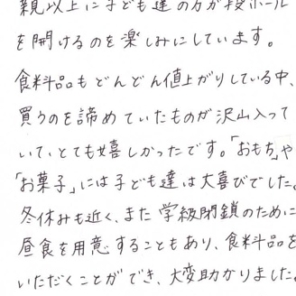 親以上に子ども達の方が段ボール
を開けるのを楽しみにしています。
食料品もどんどん値上がりしている中、
買うのを諦めていたものが沢山入って
いて、とても嬉しかったです。「おもち」や
「お菓子」には子ども達は大喜びでした。
冬休みも近く、また学級閉鎖のために
昼食を用意することもあり、食料品を
いただくことができ、大変助かりました。